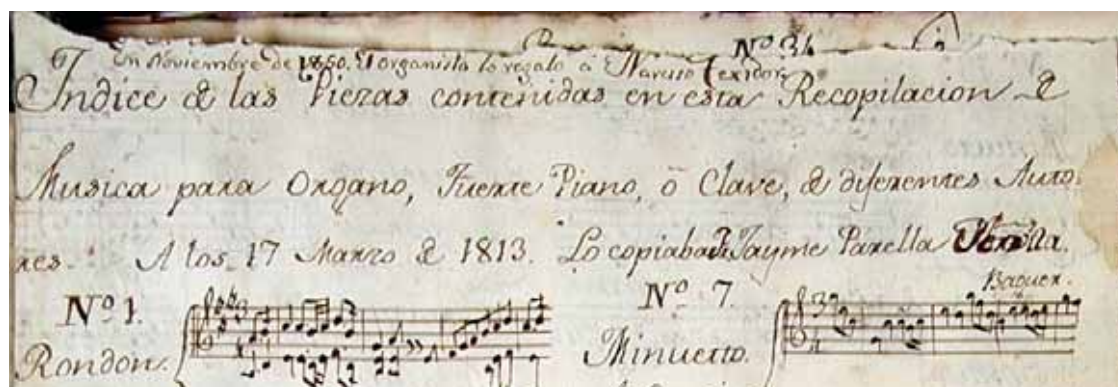 Nº 34
En Noviembre de 1850. El organista lo regaló á Narciso Texidor
Indice de las Piezas contenidas en esta Recopilacion de
Musica para Organo, Fuerte Piano, ó Clave, de diferentes Auto-
res. A los 17 Marzo de 1813. Lo copiaba Jayme Parella
Nº 1.
Rondon.
Nº 7.
Baguer.
Minuetto.